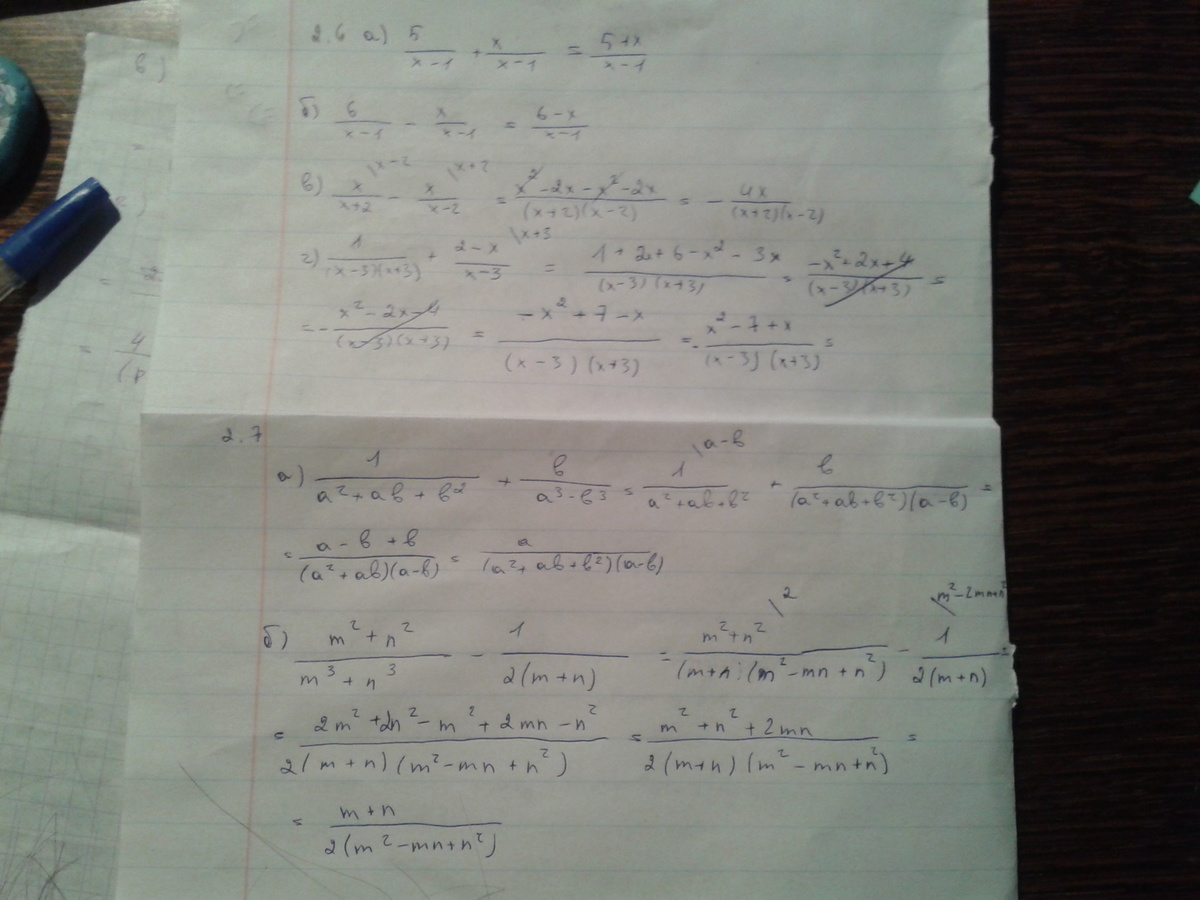 2.6 а) 5/(x-1) + x/(x-1) = (5+x)/(x-1)
б) 6/(x-1) - x/(x-1) = (6-x)/(x-1)
в) x/(x+2) \x-2 - x/(x-2) \x+2 = (x²-2x-x²-2x)/((x+2)(x-2)) = - 4x/((x+2)(x-2))
г) 1/((x-3)(x+3)) + (2-x)/(x-3) \x+3 = (1+2x+6-x²-3x)/((x-3)(x+3)) = (-x²+2x+4)/((x-3)(x+3)) =
= - (x²-2x-4)/((x-3)(x+3)) = (-x²+7-x)/((x-3)(x+3)) = - (x²-7+x)/((x-3)(x+3)) =
2.7
а) 1/(a²+ab+b²) + b/(a³-b³) = 1/(a²+ab+b²) \a-b + b/((a²+ab+b²)(a-b)) =
= (a-b+b)/((a²+ab)(a-b)) = a/((a²+ab+b²)(a-b))
б) (m²+n²)/(m³+n³) - 1/(2(m+n)) = (m²+n²)/((m+n)(m²-mn+n²)) \2 - 1/(2(m+n)) \m²-2mn+n² =
= (2m²+2n²-m²+2mn-n²)/(2(m+n)(m²-mn+n²)) = (m²+n²+2mn)/(2(m+n)(m²-mn+n²)) =
= (m+n)/(2(m²-mn+n²))